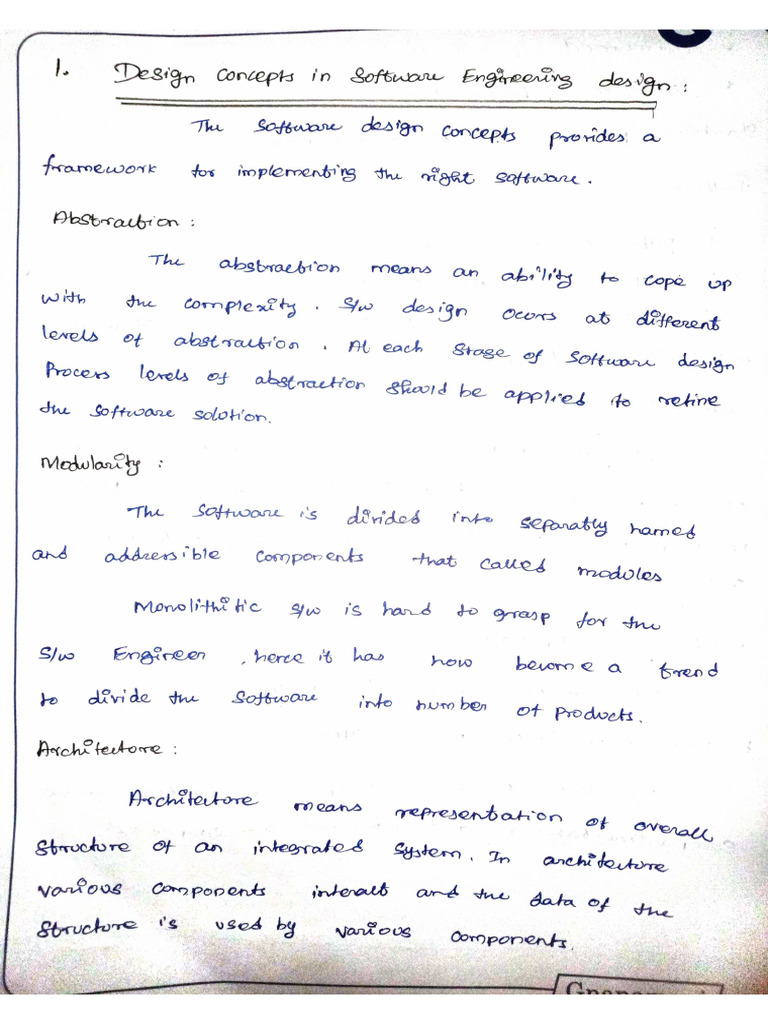 1. Design Concepts in Software Engineering design:
The software design concepts provides a
framework for implementing the right software.
Abstraction:
The abstraction means an ability to cope up
with the complexity. S/w design ocurs at different
levels of abstraction. At each stage of software design
Process levels of abstraction should be applied to refine
the software solution.
Modularity:
The software is divided into separably named
and addressible components that called modules
Monolithitic s/w is hard to grasp for the
S/w Engineer, hence it has now become a trend
to divide the software into number of products.
Architecture:
Architecture means representation of overall
structure of an integrated system. In architecture
various components interact and the data of the
structure is used by various components.